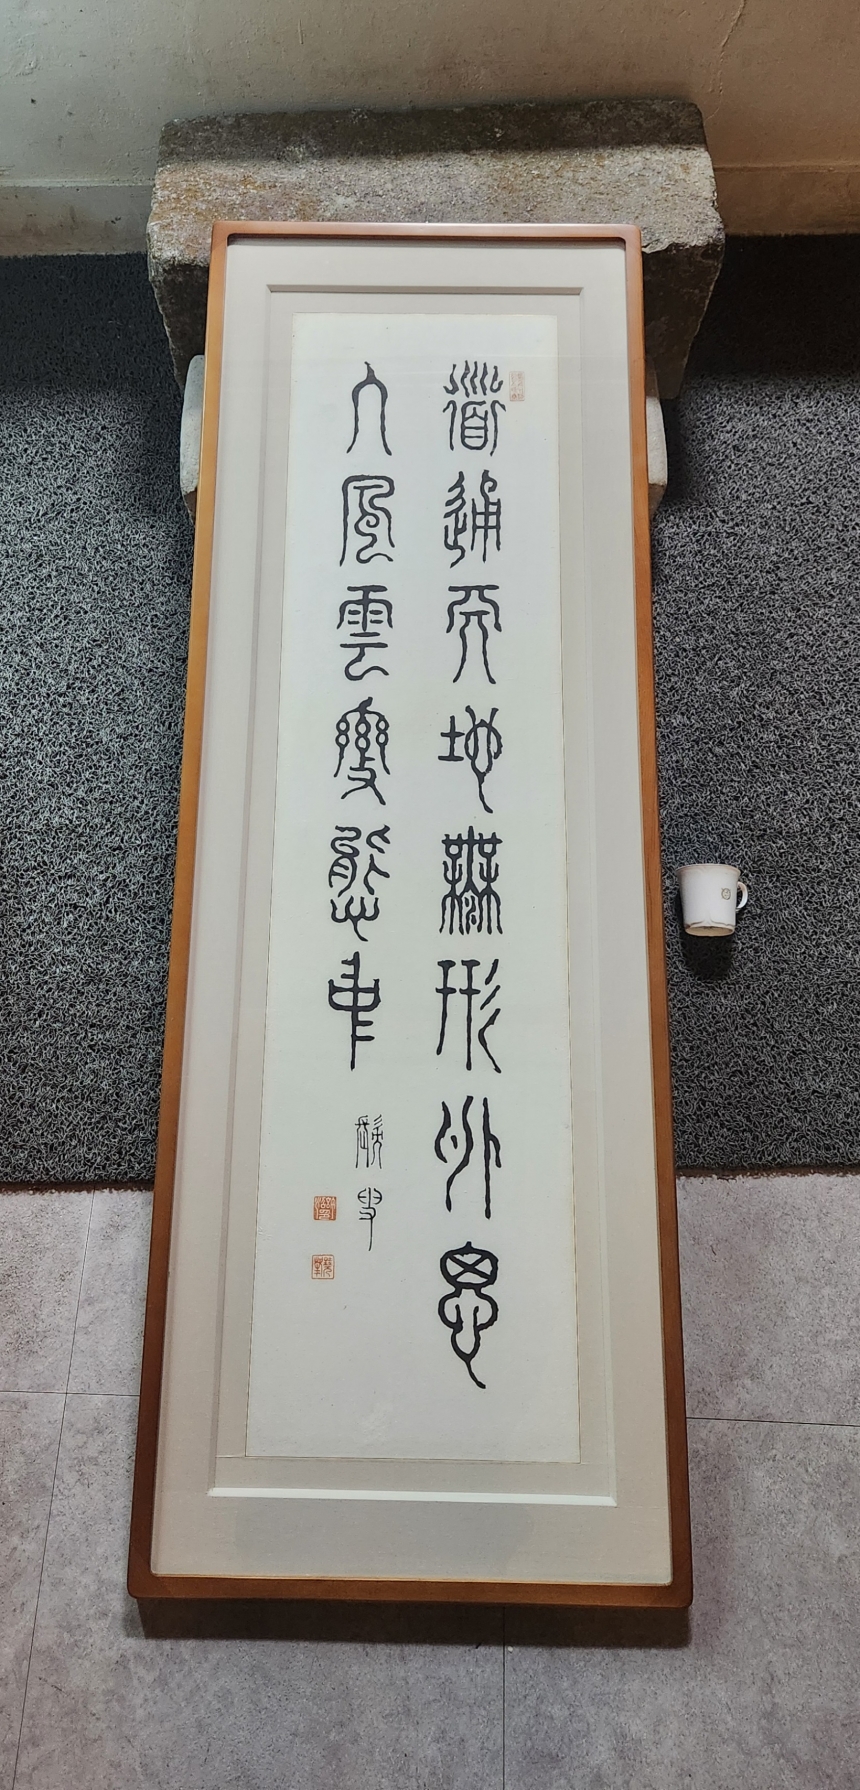 道通天地無形外思
入風雲變態中
叟